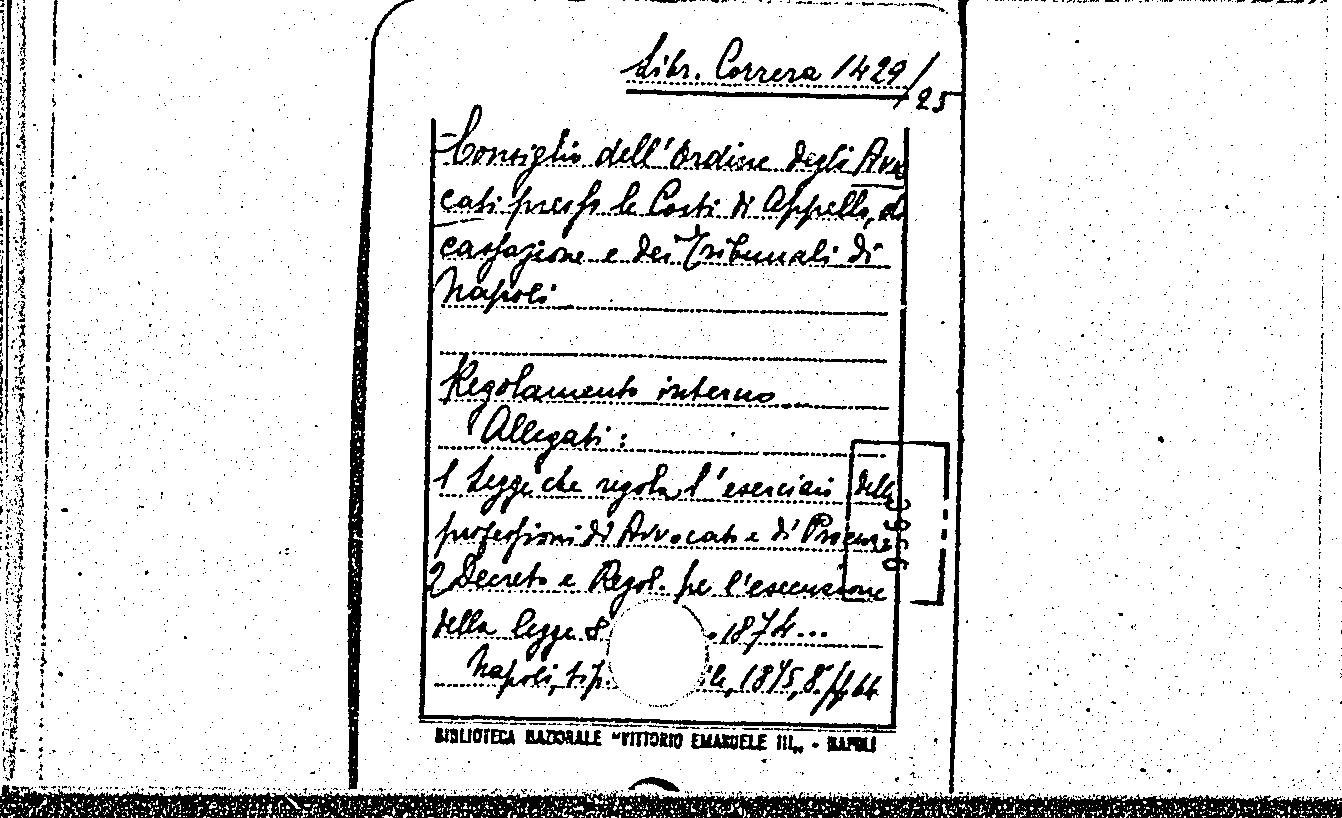 Libr. Correra 1429/25
Consiglio dell'Ordine degli Avvo
cati presso le Corti di Appello, di
cassazione e dei Tribunali di
Napoli
Regolamento interno
Allegati:
1 Legge che regola l'esercizio delle
professioni di Avvocato e di Procur.
2 Decreto e Regol. per l'esecuzione
della legge 8 . 1874...
Napoli, tip. le, 1875, 8. pp. 64
BIBLIOTECA NAZIONALE "VITTORIO EMANUELE III„ - NAPOLI